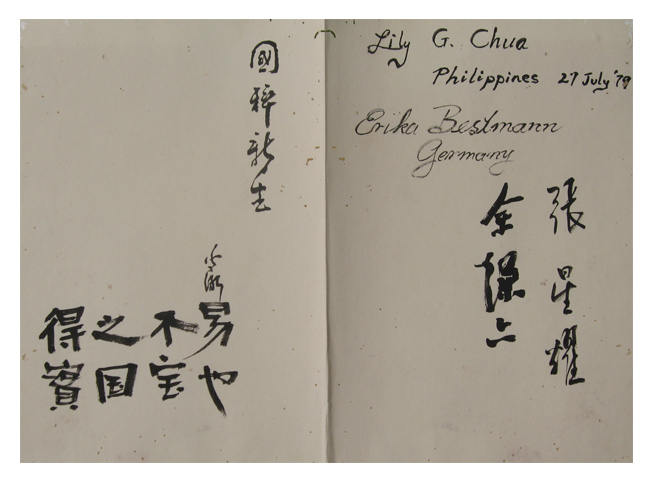 Lily G. Chua
Philippines 27 July '79
Erika Bestmann
Germany
張星耀
余
國粹新生
得之不易
實国宝也